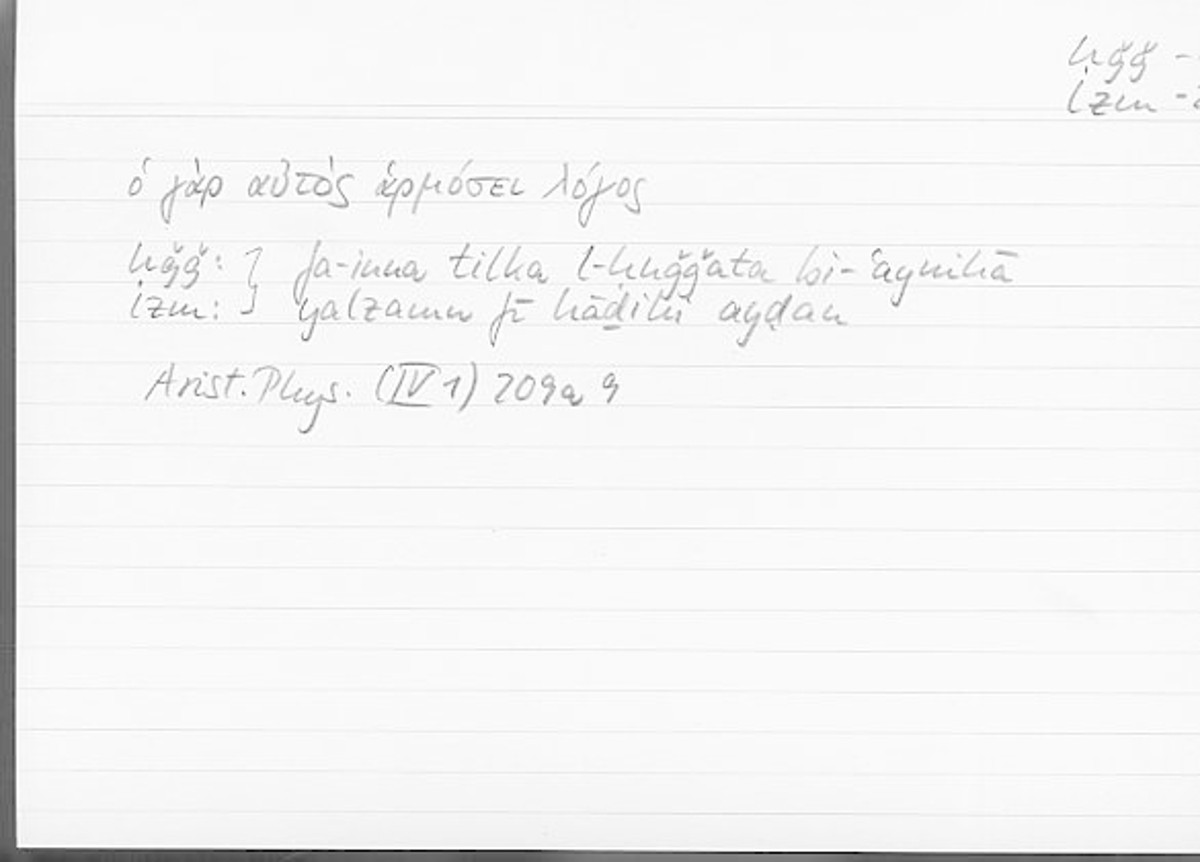 ḥǧǧ -
lzm -
ὁ γὰρ αὐτὸς ἁρμόσει λόγος
ḥǧǧ: } fa-inna tilka l-ḥuǧǧata bi-ʿaynihā
lzm: } yalzamu fī hāḏihī ayḍan
Arist. Phys. (IV 1) 209a 9